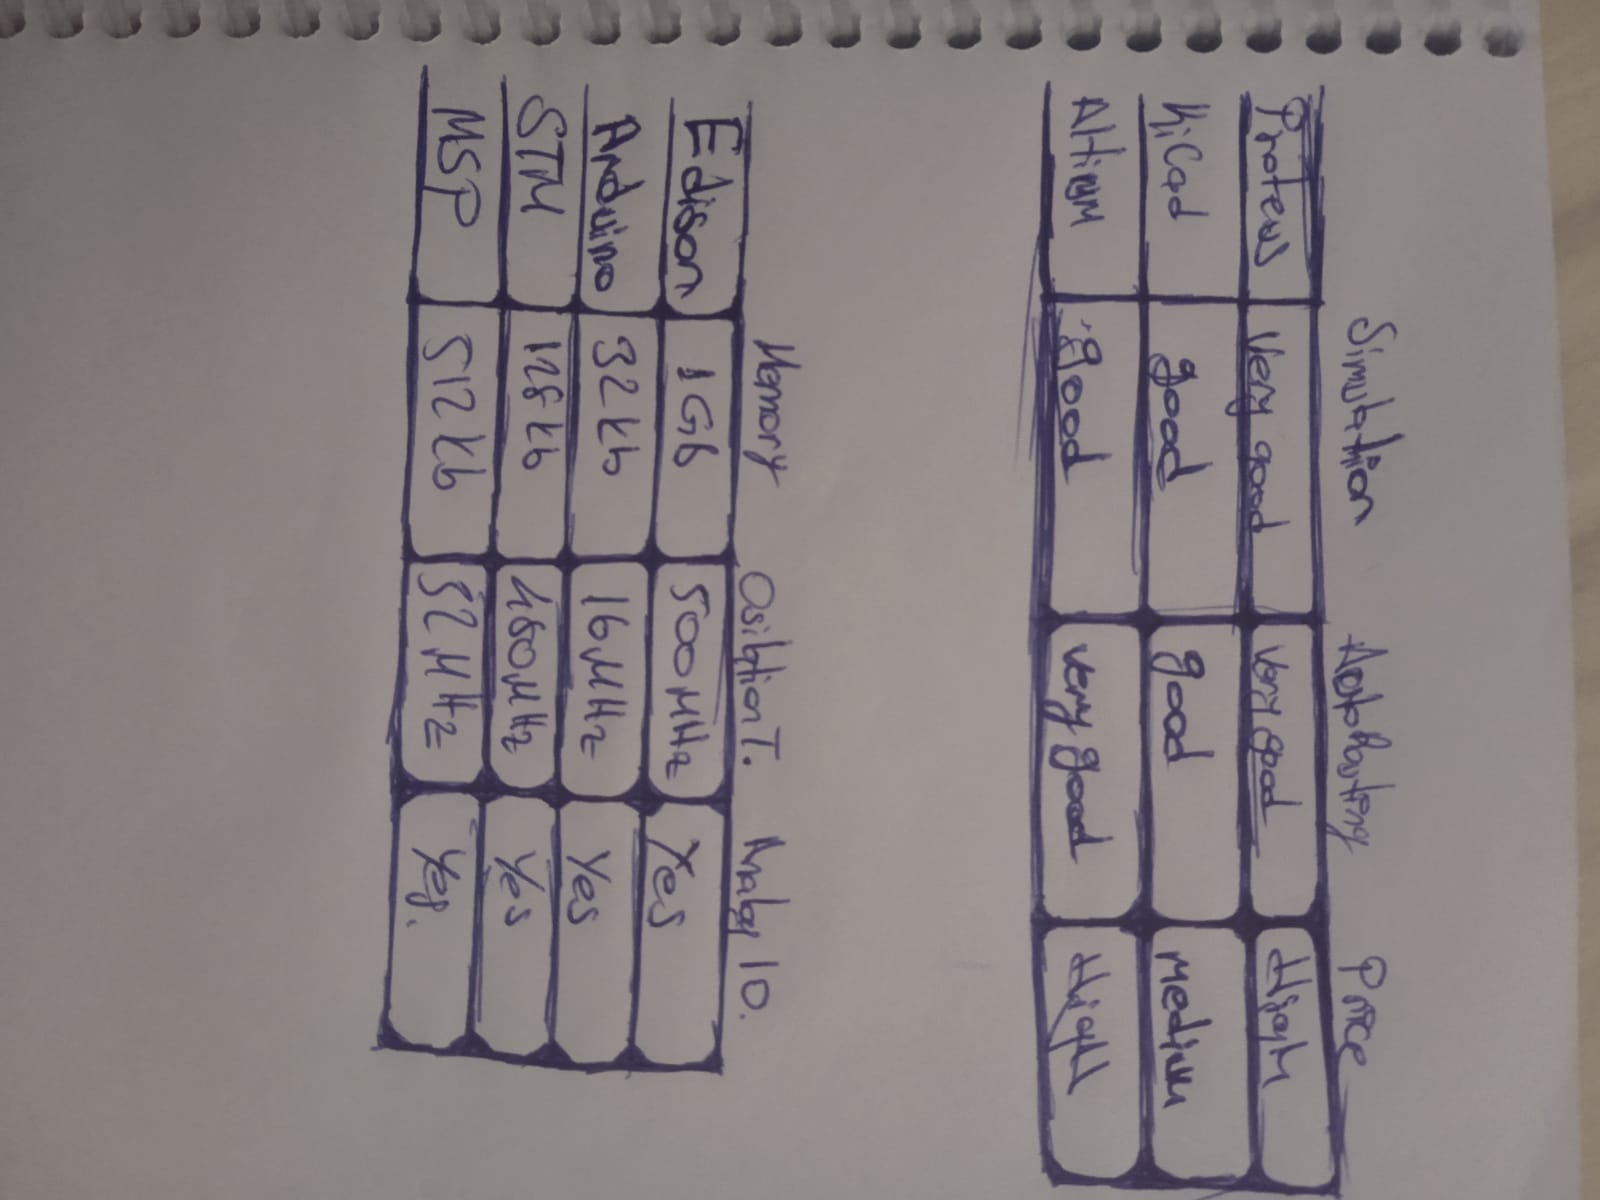 Simulation AutoRouting Price
Proteus Very good Very good High
KiCad good good Medium
Altium good very good High
Memory Osilation T. Analog IO.
Edison 1Gb 500MHz Yes
Arduino 32kb 16MHz Yes
STM 128kb 480MHz Yes
MSP 512kb 32MHz Yes.